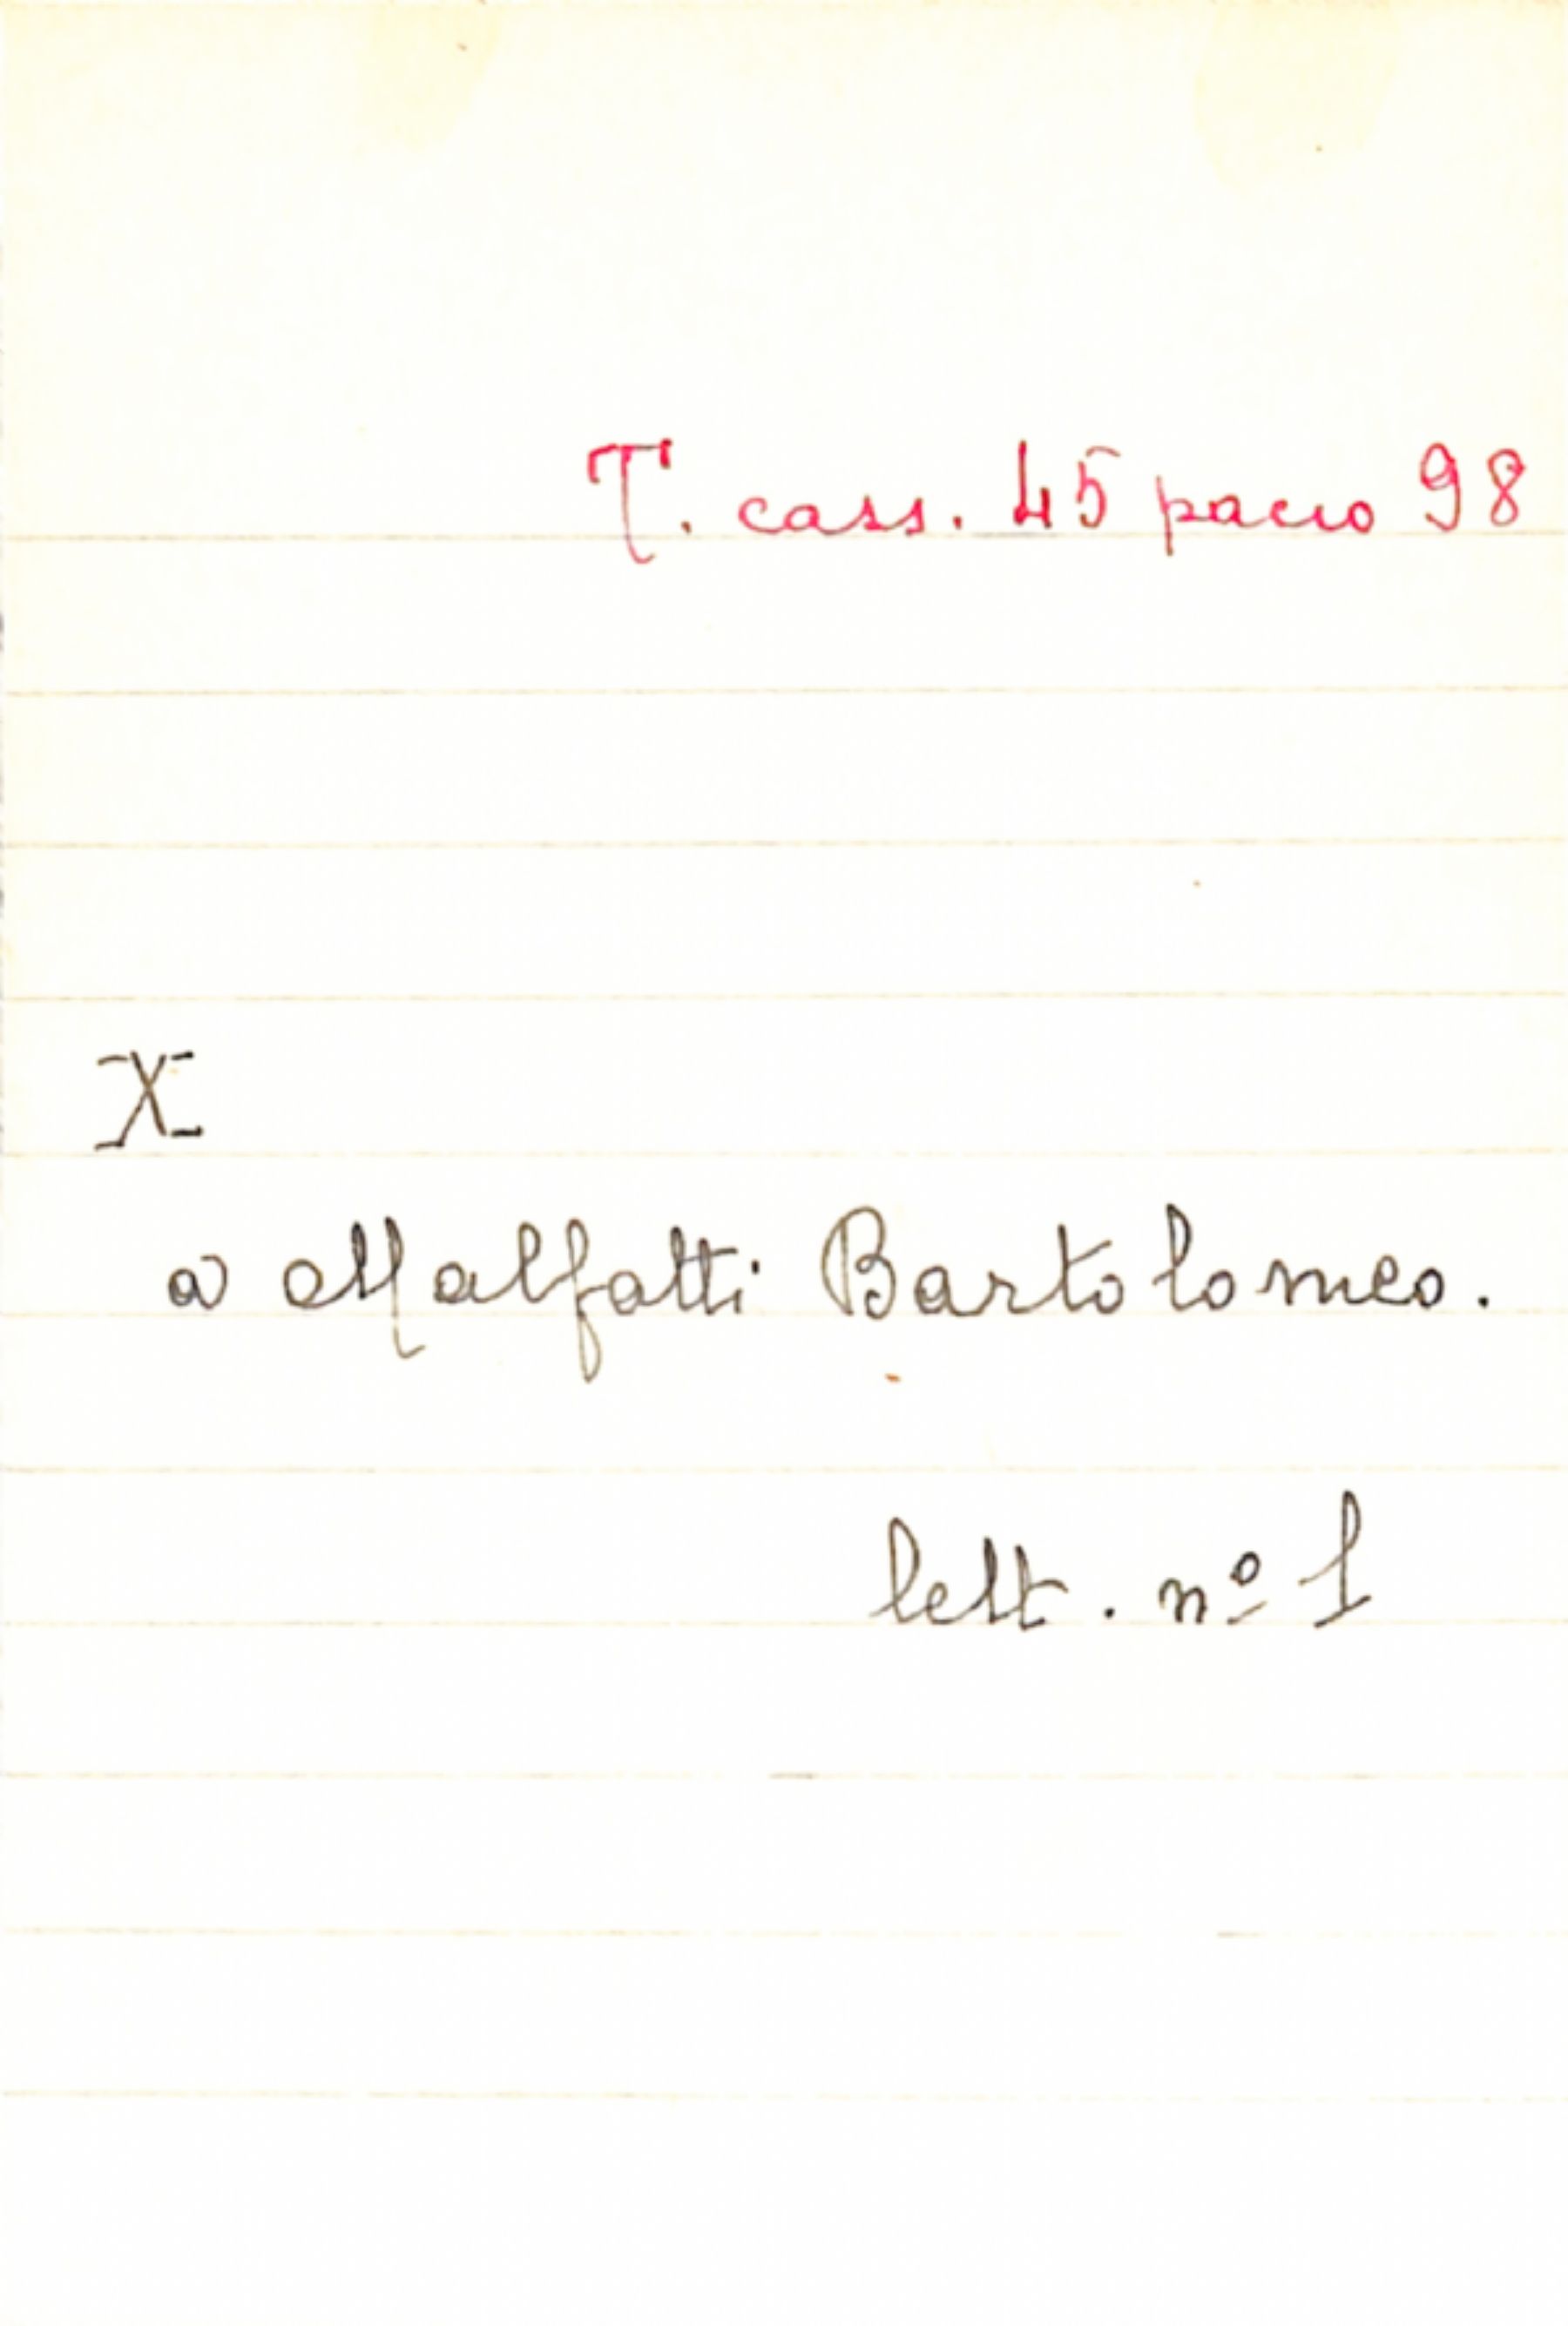 T. cass. 45 pacco 98
X
a Malfatti Bartolomeo.
lett. nº 1